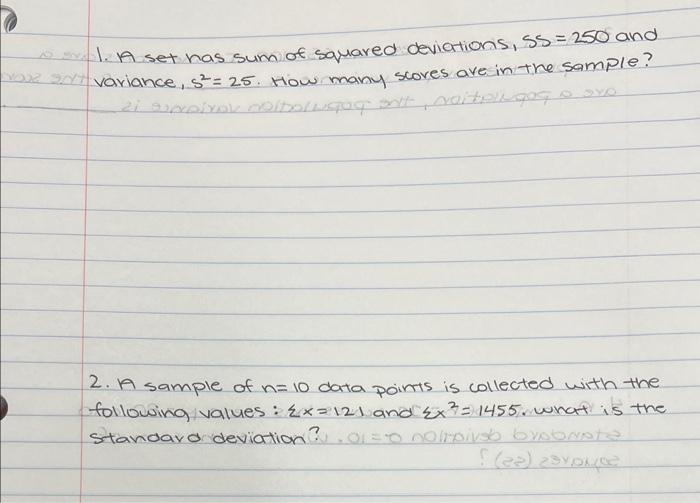 1. A set has sum of squared deviations, SS = 250 and
variance, s² = 25. How many scores are in the sample?
2. A sample of n=10 data points is collected with the
following values : Σx = 121 and Σx² = 1455. what is the
standard deviation?